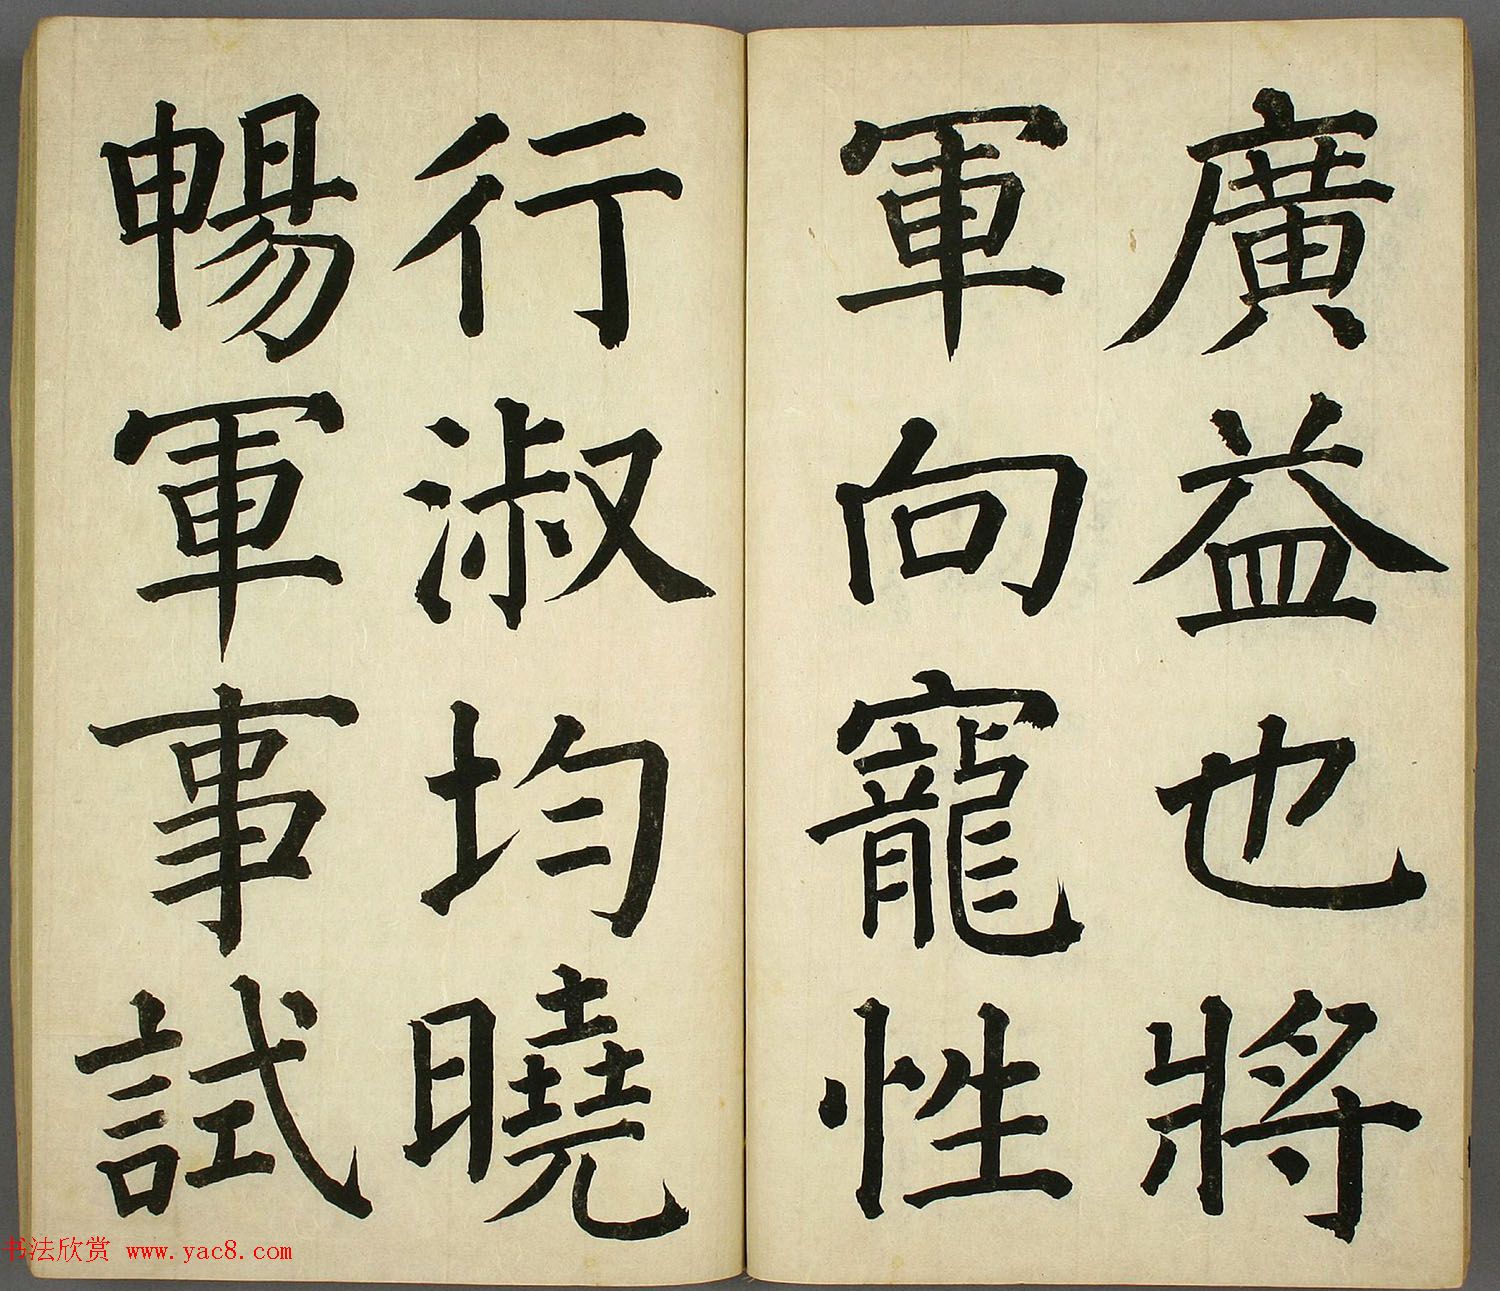 廣益也將
軍向寵性
行淑均曉
暢軍事試
书法欣赏 www.yac8.com